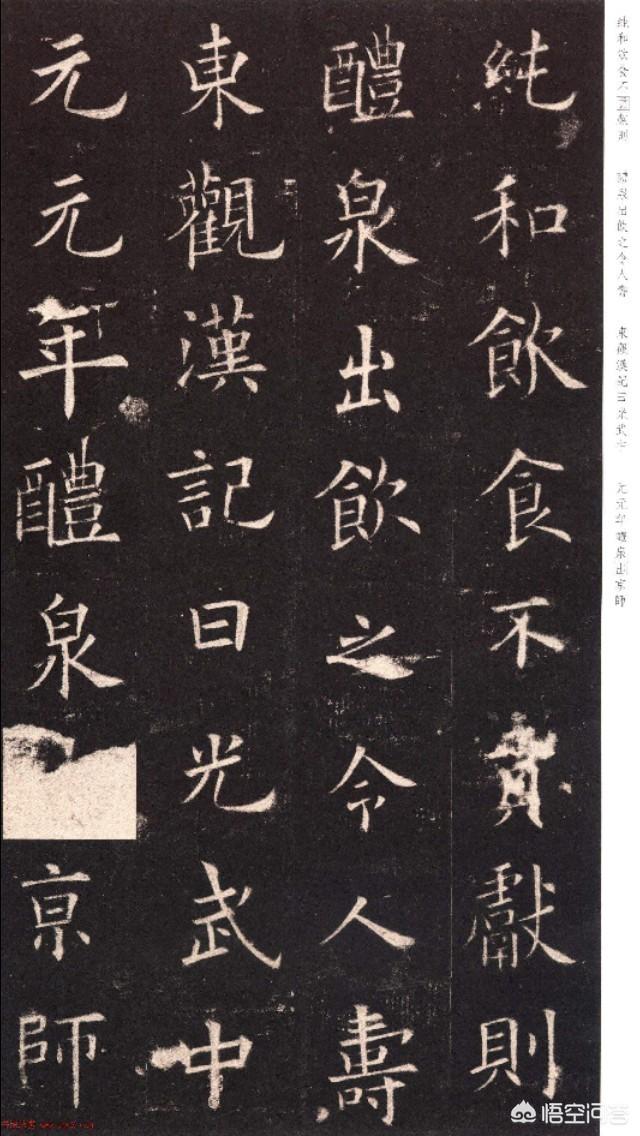 純和飲食不貢獻則
醴泉出飲之令人壽
東觀漢記曰光武中
元元年醴泉亰師
純和飲食不貢獻則 醴泉出飲之令人壽 東觀漢記曰光武中 元元年醴泉出京師
悟空问答